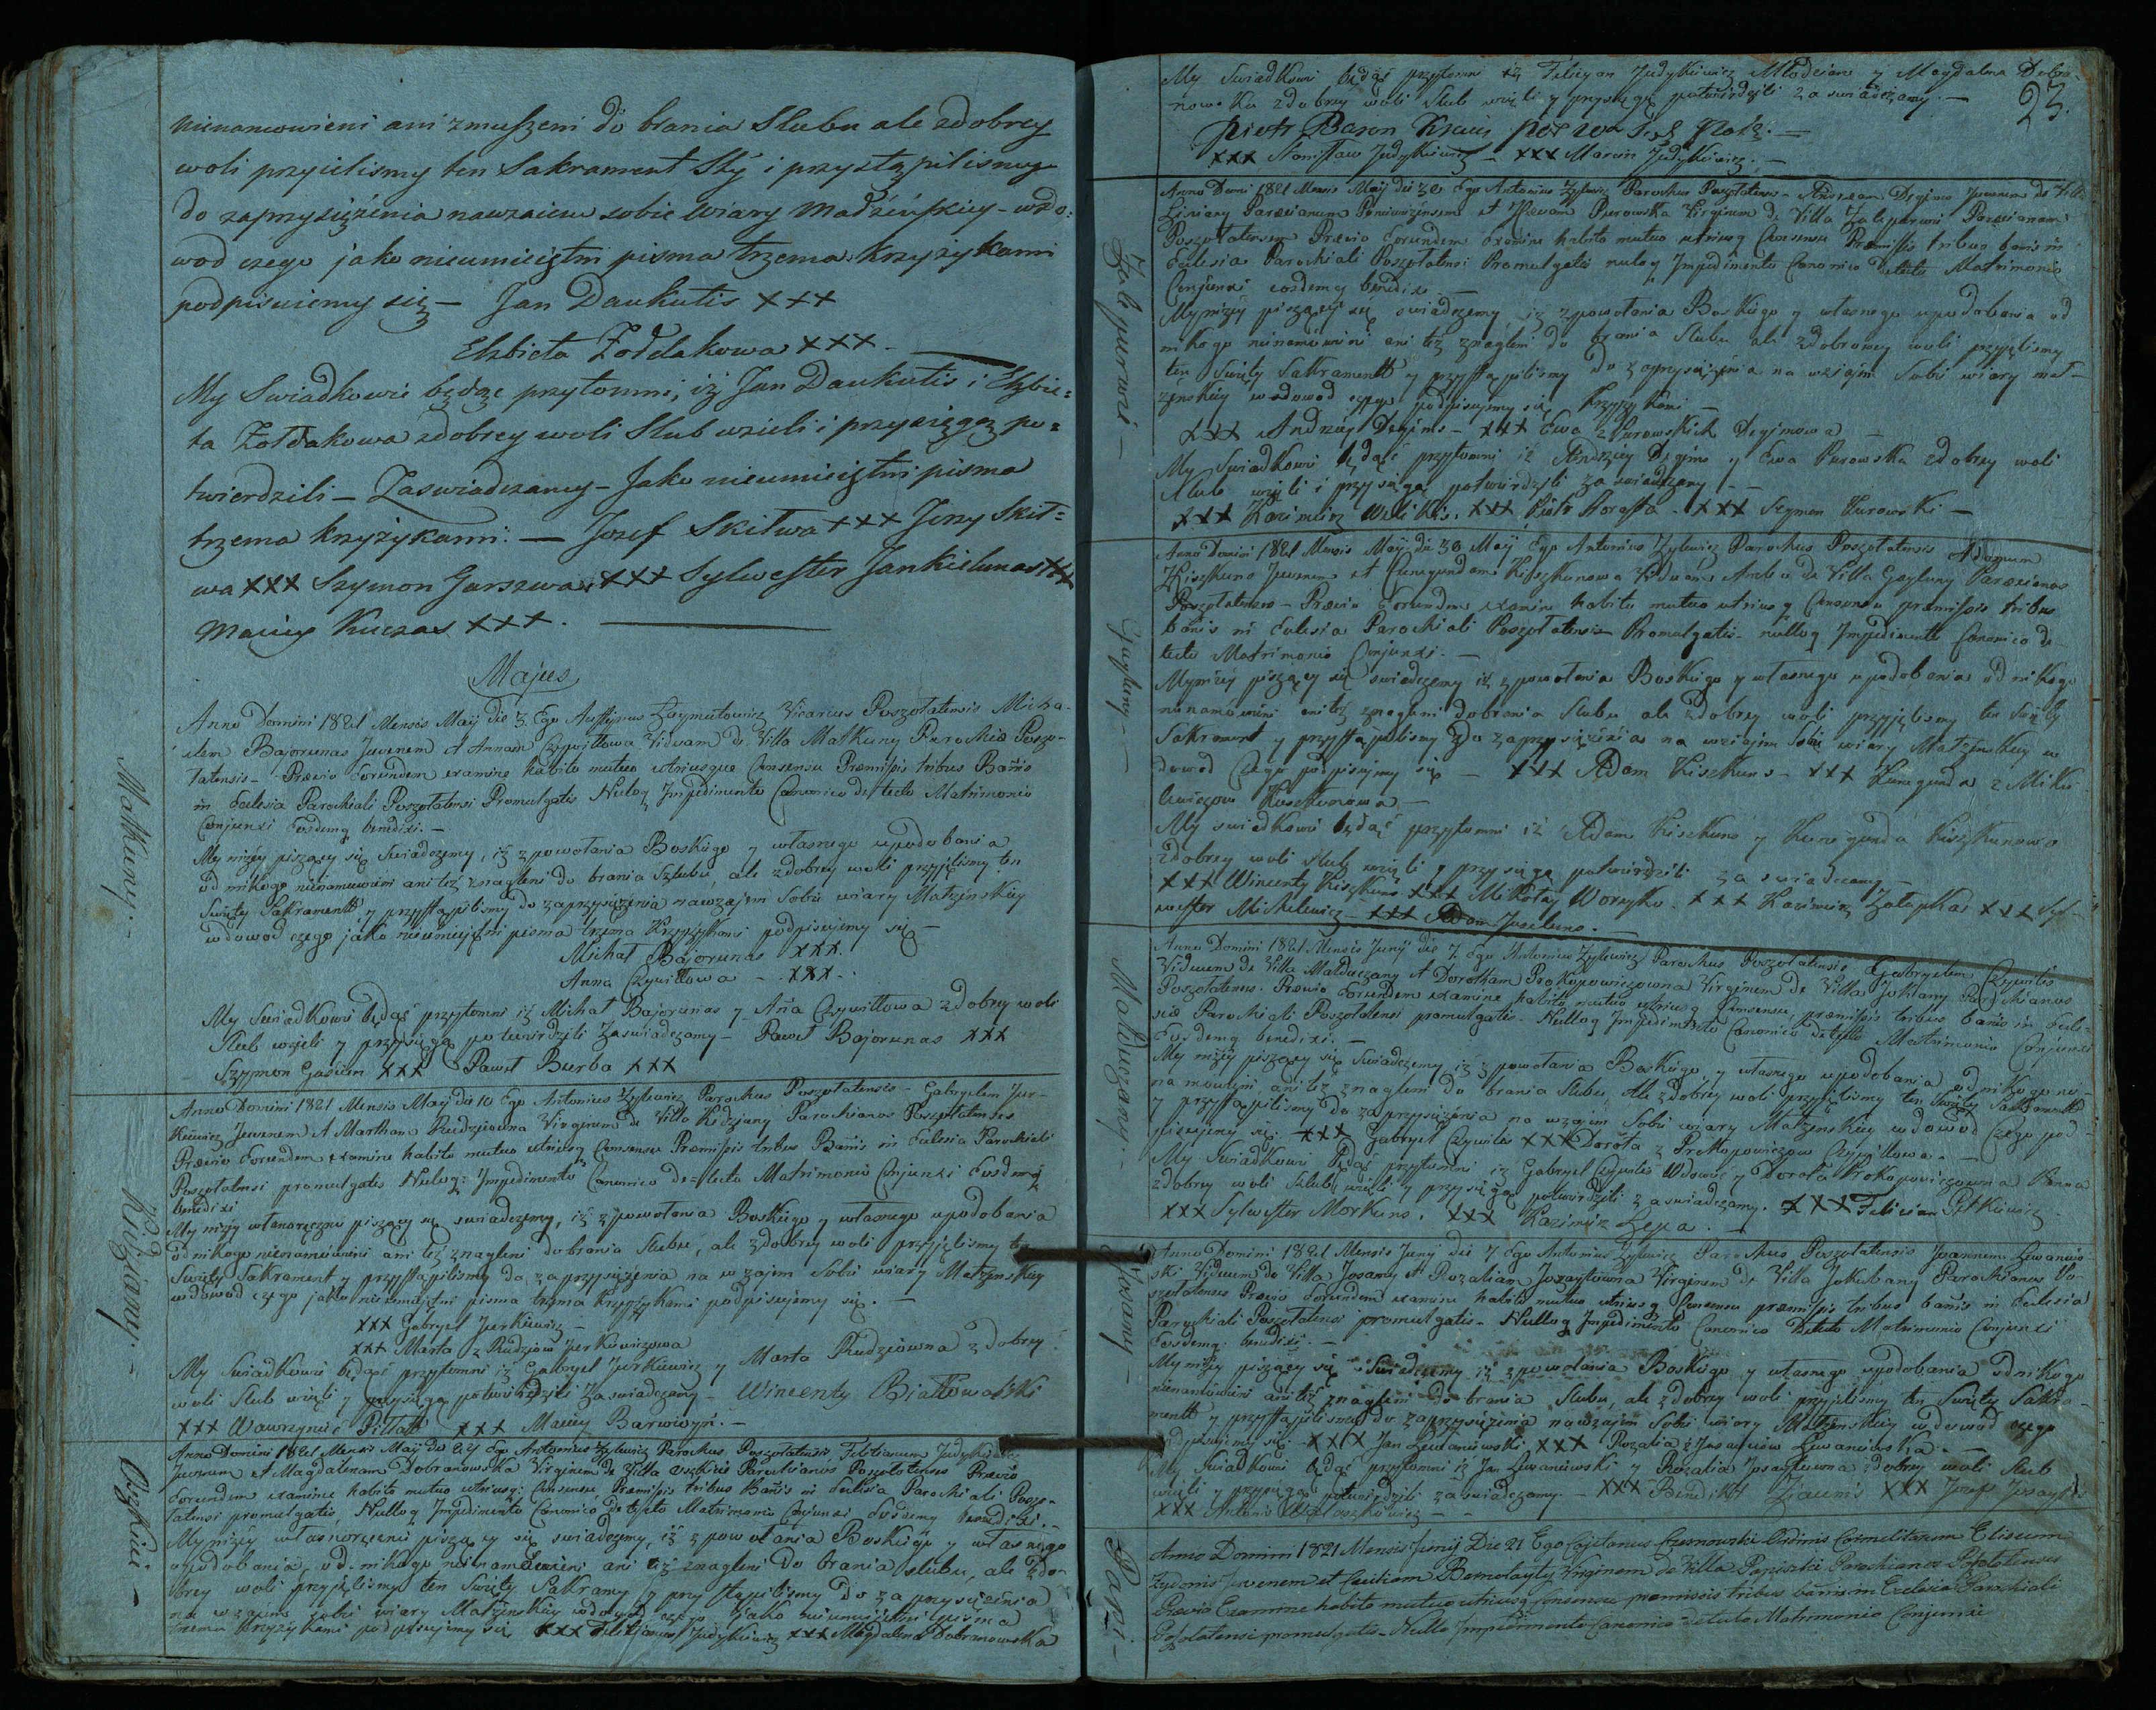 nienamowieni ani zmuszeni do brania Slubu ale zdobrey
woli przyielismy ten Sakrament Sty i przystąpilismy
do zaprzysiężenia nawzaiem sobie Wiary Madżeńskiey - wdo:
wod czego jako nieumieiętni pisma trzema Krzyżykami
podpisuiemy się — Jan Daukutis +++
Elzbieta Zołdakowa +++ -
My Swiadkowie będąc przytomni, iż Jan Daukutis i Elzbie:
ta Zołdakowa zdobrey woli Slub wzieli i przysięgą po:
twierdzili — Zaswiadczamy - Jako nieumieiętni pisma
trzema krzyżykami: — Jozef Skitwa +++ Jerzy Skit=
wa +++ Szymon Garszwa +++ Sylwester Jankielunas +++
Maciey Kuczas +++.
Majus
Anno Domini 1821 Mensis Maij die 3. Ego Zaymutowicz Vicarius Poszołatensis Micha-
elem Bajorunas Juvenem et Annam Czywiłłowa Viduam de Villa Matkuny Parochiæ Poszo-
łatensis - Prævio Eorundem examine habito mutuo utriusque Consensu Præmissis tribus Bañis
in Eclesia Parochiali Poszołatensi Promulgatis Nulloq Impedimento Canonico detecto Matrimonio
Conjunxi Eosdemq benedixi. —
My niżey piszący się Swiadczemy, iż zpowołania Boskiego y własnego upodobania
od nikogo nienamuwieni ani też znagleni do brania Szlubu, ale zdobrey woli przyjęlismy ten
Swięty Sakramentt y przystąpilismy do zaprzysiężenia nawzajem Sobie wiary Małżeńskiey
wdowod czego jako nieumiejętni pisma trzema Krzyżykami podpisujemy się —
Michał Bajorunas XXX.
Anna Czywiłłowa - XXX -
My Swiadkowie będąc przytomni iż Michał Bajorunas y Aña Czywiłłowa zdobrey woli
Slub wzieli y przysięgą potwierdzili Zaswiadczamy - Paweł Bajorunas XXX
Szymon XXX Paweł Burba XXX
Matkuny. -
Anno Domini 1821 Mensis Maij die 10 Ego Antonius Zylewicz Parochus Poszołatensis - Gabryelem Jur-
kiewicz Juvenem et Martham Rudziowna Virginem de Villa Kidziany Parochianos Poszołatenses
Prævio Eorundem examine habito mutuo utriusq Consensu Præmissis tribus Bañis in Eclesia Parochiali
Poszołatensi promulgatis Nulloq: Impedimento Canonico de=tecto Matrimonio Conjunxi Eosdemq
benedixi
My niżey własnoręcznie piszący się swiadczemy, iż zpowołania Boskiego y własnego upodobania
od nikogo nienamuwieni ani też znagleni do brania Slubu, ale zdobrey woli przyjęlismy ten
Swięty Sakrament y przystąpilismy do zaprzysiężenia na wzajem Sobie wiary Małżeńskiey
wdowod czego jako nieumiejętni pisma trzema Krzyżykami podpisujemy się. —
XXX Gabryel Jurkiewicz -
XXX Marta z Rudziow Jurkiewiczowa
My Swiadkowie będąc przytomni iż Gabryel Jurkiewicz y Marta Rudziowna z dobrey
woli Slub wzieli y przysięgą potwierdzili Zaswiadczamy - Wincenty Białłowalski
XXX Wawrzyniec Piłłatt XXX Maciey Barwicyń. —
Kidziany. -
Anno Domini 1821 Mensis Maij die 24 Ego Antonius Zylewicz Parochus Poszołatensis Felitianum Judykiewicz
Juvenem et Magdalenam Dobranowska Virginem de Villa Oszkinie Parochianos Poszołatenses Prævio
Eorundem examine habito mutuo utriusq: Consensu Præmissis tribus Bañis in Eclesia Parochiali Poszo-
łatensi promulgatis, Nulloq Impedimento Canonico detecto Matrimonio Conjunxi Eosdemq benedixi. -
My niżey własnoręcznie piszący się swiadczemy, iż zpowołania Boskiego y własnego
upodobania, od nikogo nienamuwieni ani też znagleni do brania slubu, ale zdo-
brey woli przyjęlismy ten Swięty Sakrament y przystąpilismy do zaprzysiężenia
na wzajem sobie wiary Małżeńskiey wdowod czego jako nieumiejętni pisma
trzema krzyżykami podpisujemy się XXX Felicyann Judykiewicz XXX Magdalena Dobranowska
Oszkinie. -
23.
My Swiadkowie będąc przytomni iż Felicyan Judykiewicz Młodzian y Magdalena Dobra-
nowska zdobrey woli Slub wzieli y przysięgą potwierdzili zaswiadczamy. —
Piotr Baron —
XXX Stanisław Judykiewicz - XXX Marcin Judykiewicz. -
Anno Domi 1821 Mensis Maij die 30 Ego Antonius Zylewicz Parochus Poszołatens - Andream Degimo Juvenem de Villa
Parœcianum Poniewiżensem et Hævam Purowska Virginem de Villa Zalepurwie Parœcianam
Poszołatensem Prævio Eorundem examine habito mutuo utriusq Consensu Præmissis tribus banis in
Eclesia Parochiali Poszołatensi Promulgatis nuloq Impedimento Canonico Detecto Matrimonio
Conjunxi eosdemq benedixi —
My niżey piszący się swiadczemy iż zpowołania Boskiego y własnego upodobania od
nikogo nienamuwieni ani też znagleni do brania Slubu ale zdobrowey woli przyjęlismy
ten Swięty Sakramentt y przystąpilismy do zaprzysiężenia na wzajem Sobie wiary mał-
żenskiey wdowod czego podpisujemy się Krzyży kami —
XXX Andrzey Degims - XXX Ewa z Purowskich Degimowa -
My Swiadkowie będąc przytomni iż Andrzey Degimo y Ewa Purowska zdobrey woli
Slub wzieli i przysięgą potwierdzili zaswiadczamy —
XXX Kazimierz Welikis. XXX Piotr XXX Szymon Purowski —
Zalepurwie —
Anno Domini 1821 Mensis Maij die 30 Maij Ego Antonius Zylewicz Parochus Poszołatensis Adamum
Kiszkuno Juvenem et Cunegundam Kiszkunowa Viduam Ambo de Villa Gayluny Parœcianos
Poszołatenses - Prævio Eorundem examine habito mutuo utriusq Consensu premissis tribus
bañis in Eclesia Parochiali Poszołatensi Promulgatis - nulloq Impedimento Canonico de-
tecto Matrimonio Conjunxi. —
My niżey piszący się swiadczemy iż zpowołania Boskiego y własnego upodobania od nikogo
nienamuwieni ani też znagleni do brania Slubu ale zdobrey woli przyjęlismy ten Swięty
Sakrament y przystąpilismy do zaprzysiężenia na wzajem Sobie wiary Małżeńskiey w
dowod czego podpisujemy się — XXX Adam Kiszkuns - XXX Kunegunda z Miku-
Kiszkunowa —
My swiadkowie będąc przytomni iż Adam Kiszkuno y Kunegunda Kiszkunowa
zdobrey woli slub wzieli y przysięgą potwierdzili zaswiadczamy —
XXX Wincenty Kiszkuno XXX Mikołay Woszyko. XXX Kazimierz Załapkas XXX Syl-
wester Michilewicz - XXX Adam Juselunas. —
Gayluny —
Anno Domini 1821 Mensis Junij die 7. Ego Antonius Zylewicz Parochus Poszołatensis Gabryelem Czywilis
Viduum de Villa Malduczany et Dorotham Prokopowiczowna Virginem de Villa Jokiany Parochianos
Poszołatenses. Prævio Eorundem examine habito mutuo utriusq Consensu, præmissis tribus banis in Ecle-
sia Parochiali Poszołatensi promulgatis - Nulloq Impedimento Canonico detecto Matrimonio Conjunxi
Eosdemq benedixi. —
My niżey piszący się Swiadczemy, iż zpowołania Boskiego y własnego upodobania od nikogo nie-
namowieni ani też znagleni do brania Slubu, ale zdobrey woli przyjęlismy ten Swięty Sakramentt
y przystąpilismy do zaprzysiężenia na wzajem Sobie wiary Małżenskiey wdowod Czego pod-
pisujemy się. XXX Gabryel Czywilis XXX Dorota z Prokopowiczow Czywiłłowa. —
My Swiadkowie będąc przytomni iż Gabryel Czywilis Wdowiec y Dorota Prokopowiczowna Panna
zdobrey woli Slub wzieli y przysięgą potwierdzili zaswiadczamy. XXX Felician Pełkiewicz -
XXX Sylwester Morkuns. XXX Kazimierz Zeyza. -
Malduczany. -
Anno Domini 1821 Mensis Junij die 7. Ego Antonius Zylewicz Parochus Poszołatensis Joannem Lewaniew-
ski Viduum de Villa Josany et Rozaliam Josaytowna Virginem de Villa Jokubany Parochianos Po-
szołatenses Prævio Eorundem examine habito mutuo utriusq Consensu præmissis tribus bañis in Eclesia
Parochiali Poszołatensi promulgatis - Nulloq Impedimento Canonico Detecto Matrimonio Conjunxi
Eosdemq benedixi. —
My niżey piszący się Swiadczemy iż zpowołania Boskiego y własnego upodobania od nikogo
nienamuwieni ani też znagleni do brania Slubu, ale zdobrey woli przyjęlismy ten Swięty Sakra-
mentt y przystąpilismy do zaprzysiężenia nawzajem Sobie wiary Małżenskiey wdowod czego
podpisujemy się. XXX Jan Lewaniewski XXX Rozalia z Lewaniewska. —
My Swiadkowie będąc przytomni iż Jan Lewaniewski y Rozalia Josaytowna zdobrey woli Slub
wzieli y przysięgą potwierdzili zaswiadczamy. — XXX Benedikt Zaunis XXX Jozef Josayt
XXX Antoni -
Josany —
Anno Domini 1821 Mensis Junij Die 21 Ego Cajetanus Czesnowski Ordinis Carmelitarum Eliseum
Zydonis Juvenem et Ceciliam Bernotayty Virginem de Villa Papiszki Parochianos Poszołatenses
Prævio Examine habito mutuo utriusq Consensu premissis tribus bañis in Ecclesia Parochiali
Poszołatensi promulgatis - Nullo Impedimento Canonico detecto Matrimonio Conjunxi
Papi-